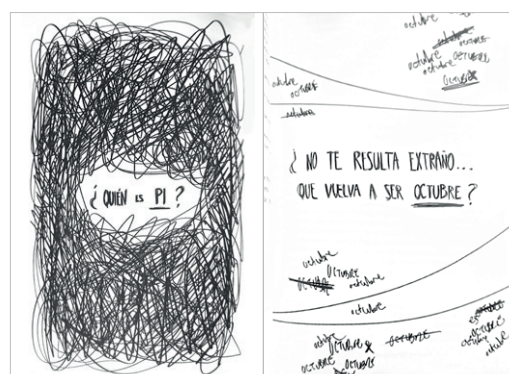 ¿ QUIÉN ES PI ?
octubre
octubre
octubre OCTUBRE
octubre
OCTUBRE
octubre
OCTUBRE
octubre
¿ NO TE RESULTA EXTRAÑO...
QUE VUELVA A SER OCTUBRE ?
octubre
OCTUBRE
OCTUBRE octubre
octubre
octubre
OCTUBRE octubre OCTUBRE
octubre octubre
OCTUBRE OCTUBRE octubre